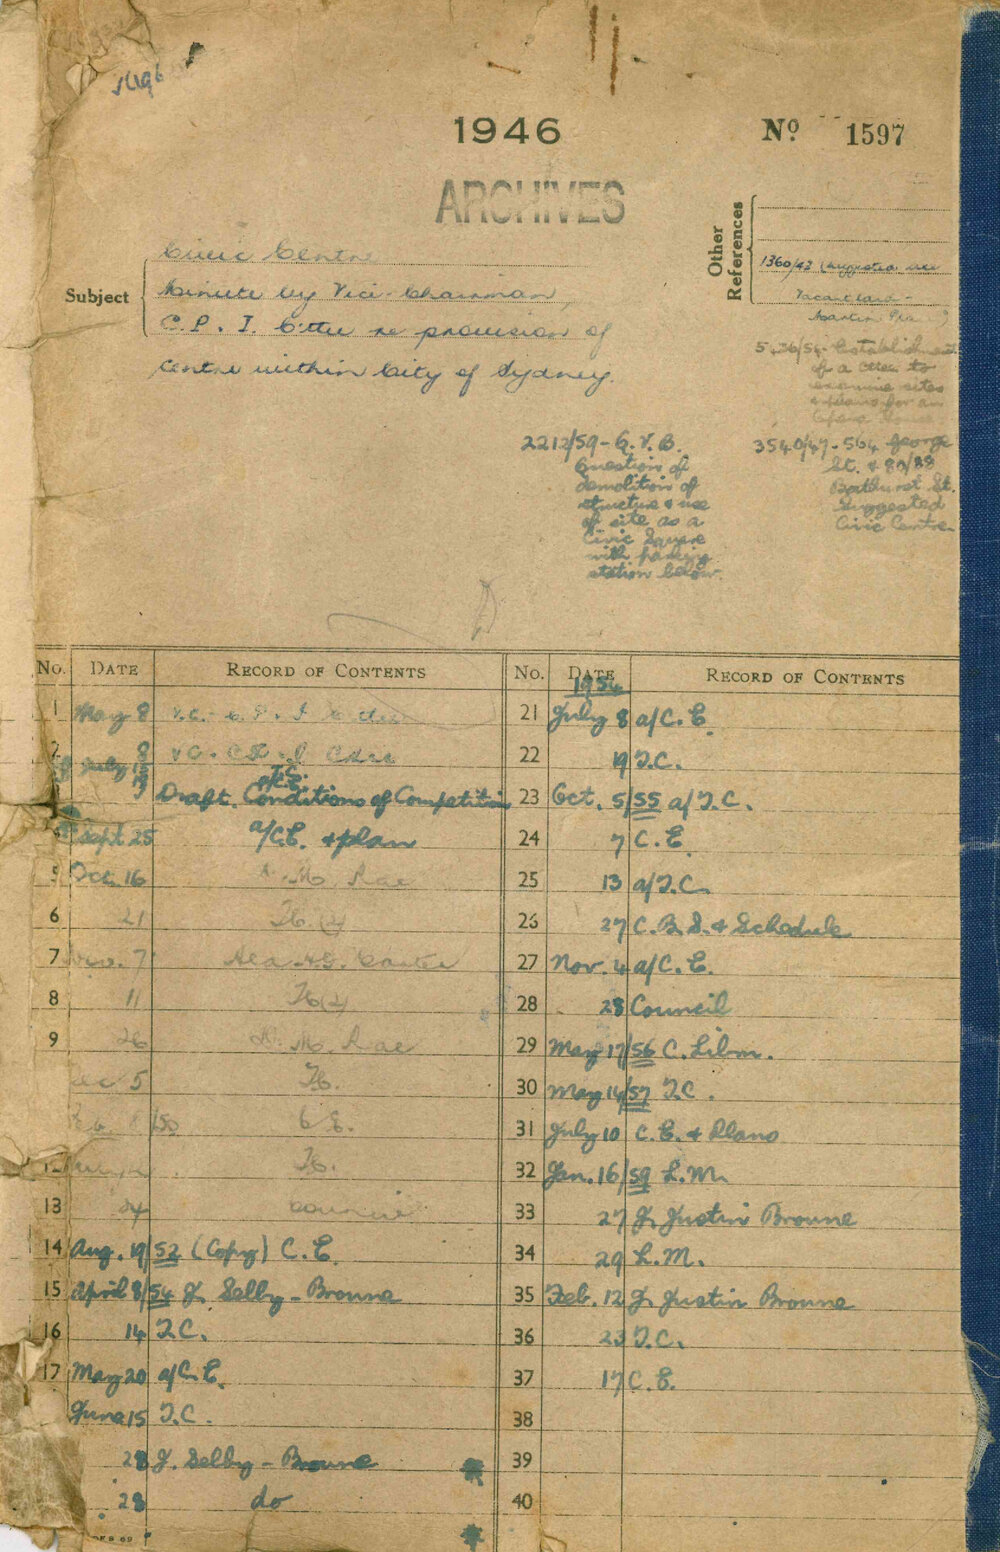 1946
No 1597
ARCHIVES
Other References
1360/42 (Suggested use
Vacant land -
Martin Place)
Subject
Civic Centre
Minute by Vice-Chairman,
C.P. I. Cttee re provision of
centre within City of Sydney.
Establishment
of a cttee to
examine sites
& plans for an
Opera House
2212/59 - Q.V.B.
Question of
demolition of
structure & use
of site as a
Civic Square
with parking
station below.
3540/47 - 564 George
St. & 80/88
Bathurst St.
Suggested
Civic Centre
No. DATE RECORD OF CONTENTS
1 May 8 V.C. - C.P. I. Cttee
2
July
Draft Conditions of Competition
Sept 25 a/C.E. & plan
5 Oct. 16 Mc Rae
6 21
7 Nov. 7 Ald. Carter
8 11
9 26 Mc Rae
5
8/50 C.E.
13 24 Council
14 Aug. 19/52 (Copy) C.E.
15 April 8/54 J. Selby-Browne
16 14 T.C.
17 May 20 a/C.E.
June 15 T.C.
28 J. Selby-Browne
28 do
No. DATE RECORD OF CONTENTS
1954
21 July 8 a/C.E.
22 19 T.C.
23 Oct. 5/55 a/T.C.
24 7 C.E.
25 13 a/T.C.
26 27 C.B.S. & Schedule
27 Nov. 4 a/C.E.
28 28 Council
29 May 17/56 C. Libn.
30 May 14/57 T.C.
31 July 10 C.E. & Plans
32 Jan. 16/59 L.M.
33 27 J. Justin Browne
34 29 L.M.
35 Feb. 12 J. Justin Browne
36 23 T.C.
37 17 C.E.
38
39
40